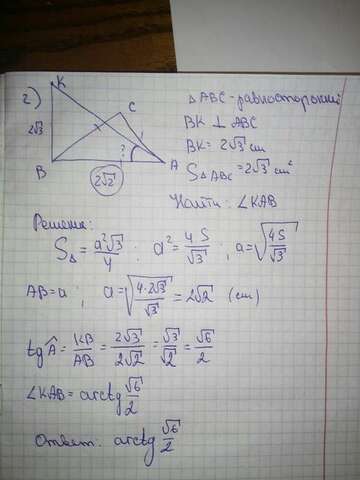 2)
K
C
2√3
B
A
?
2√2
△ABC - равносторонний
BK ⊥ ABC
BK = 2√3 cm
S△ABC = 2√3 cm²
Найти: ∠KAB
Решение:
S△ = a²√3/4 ; a² = 4S/√3 ; a = √(4S/√3)
AB = a ; a = √(4·2√3/√3) = 2√2 (cm)
tg Â = KB/AB = 2√3/2√2 = √3/√2 = √6/2
∠KAB = arctg √6/2
Ответ: arctg √6/2